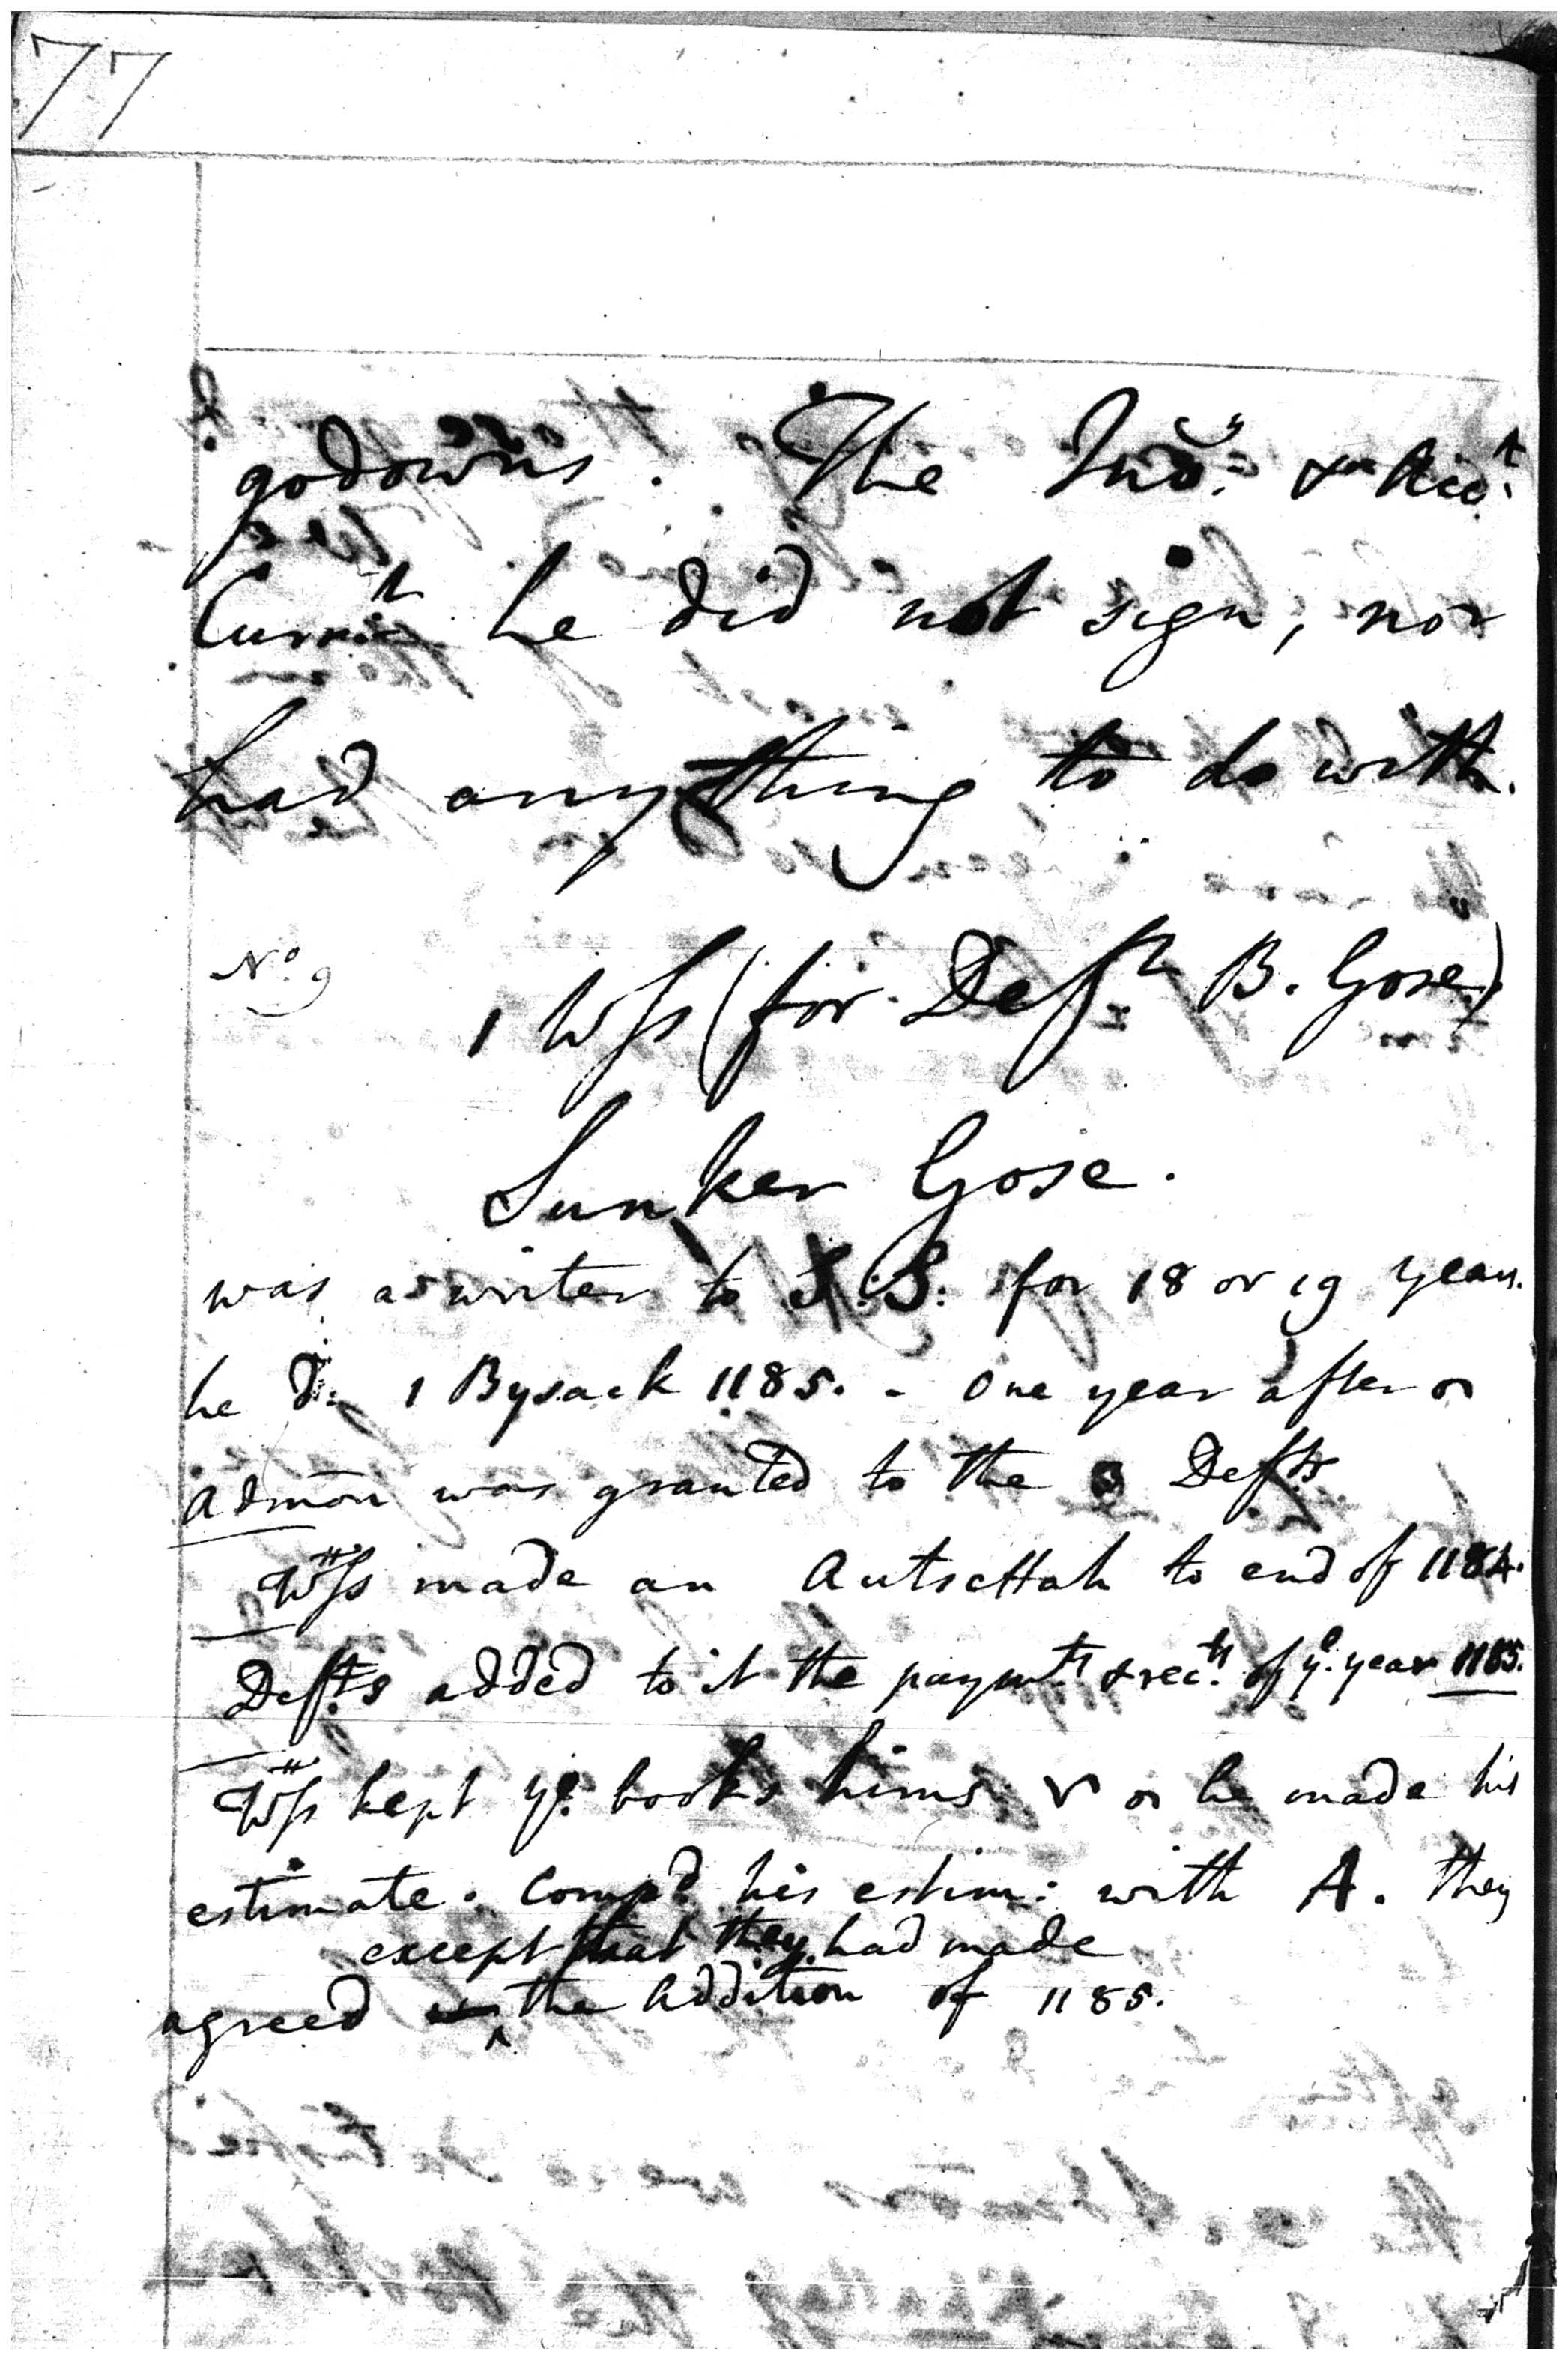 77
godowns. The Invs. & Acct.
Currt. he did not sign, nor
had anything to do with.
No 9
1 Wss (for Deft. B. Gose)
Sunker Gose.
was a writer to S. S: for 18 or 19 years.
he d: 1 Bysack 1185. - One year after
admōn was granted to the 3 Defts
Wss made an Autsettah to end of 1184.
Defts added to it the paymts. & rects. of ye. year 1185.
Wss kept ye. books hims
he made his
estimate. Comp'd his estim: with A. they
except that they had made
agreed the addition of 1185.